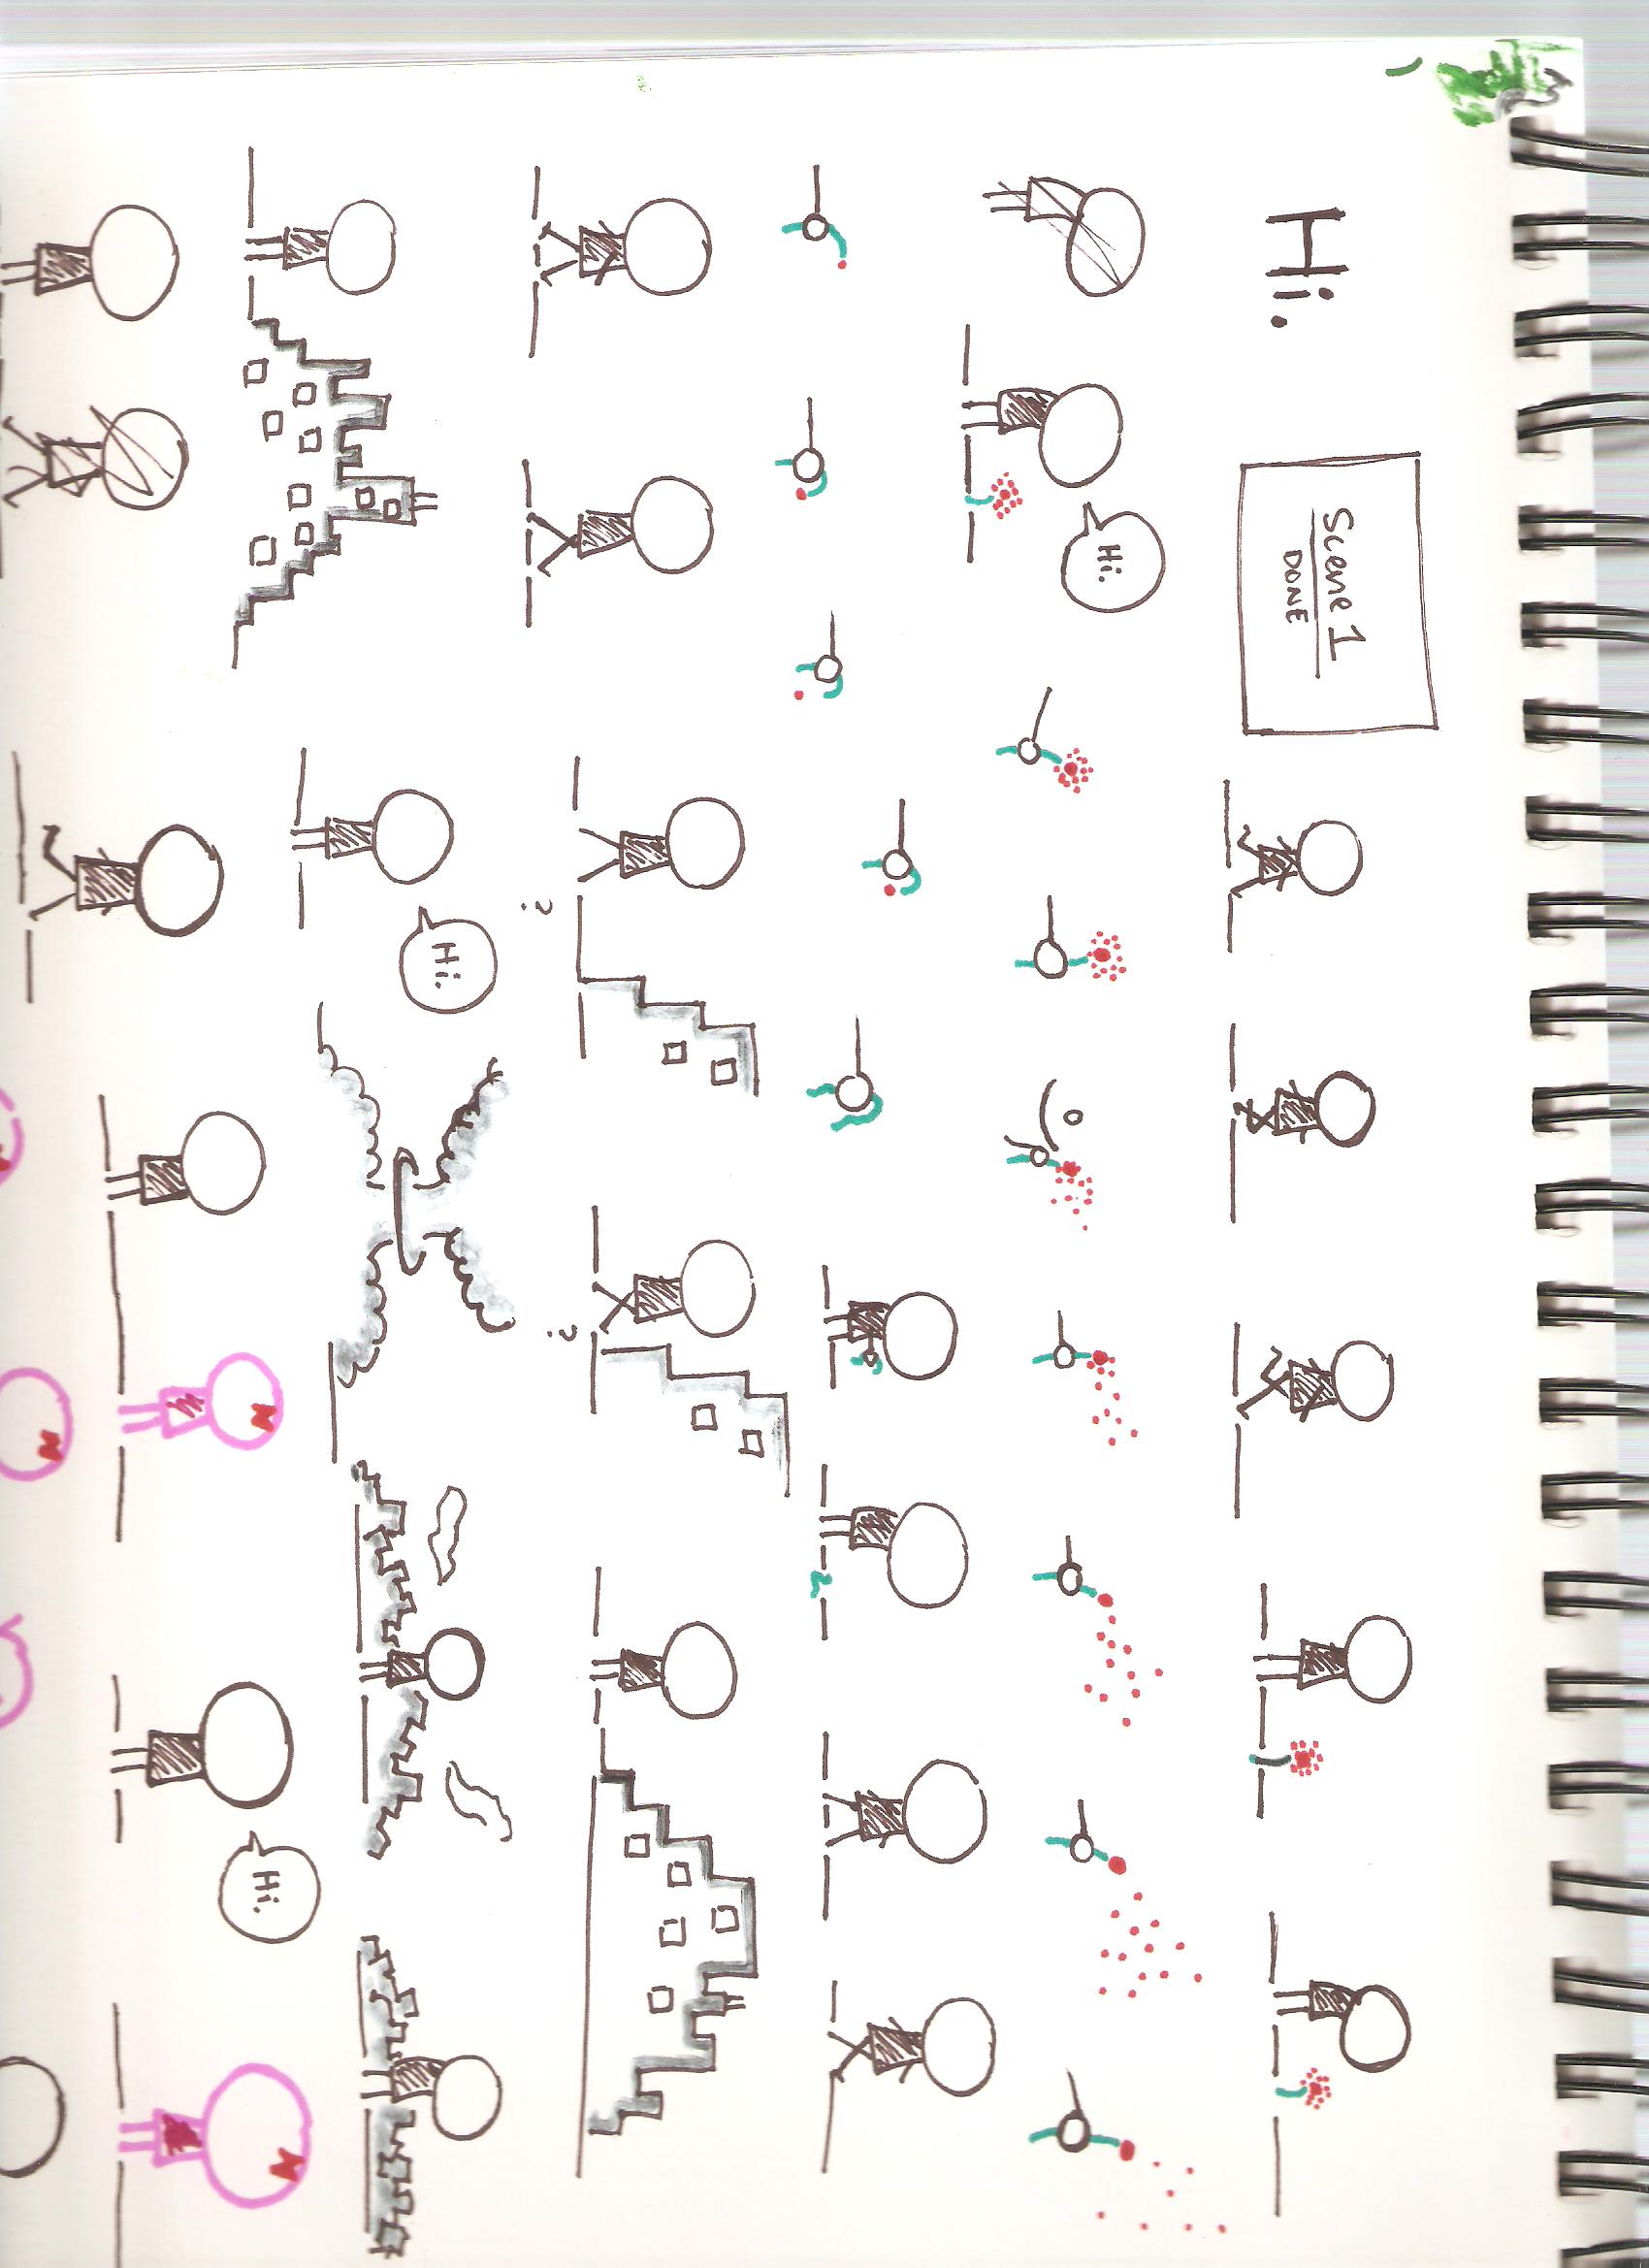 Hi.
Scene 1
DONE
Hi.
?
?
Hi.
Hi.